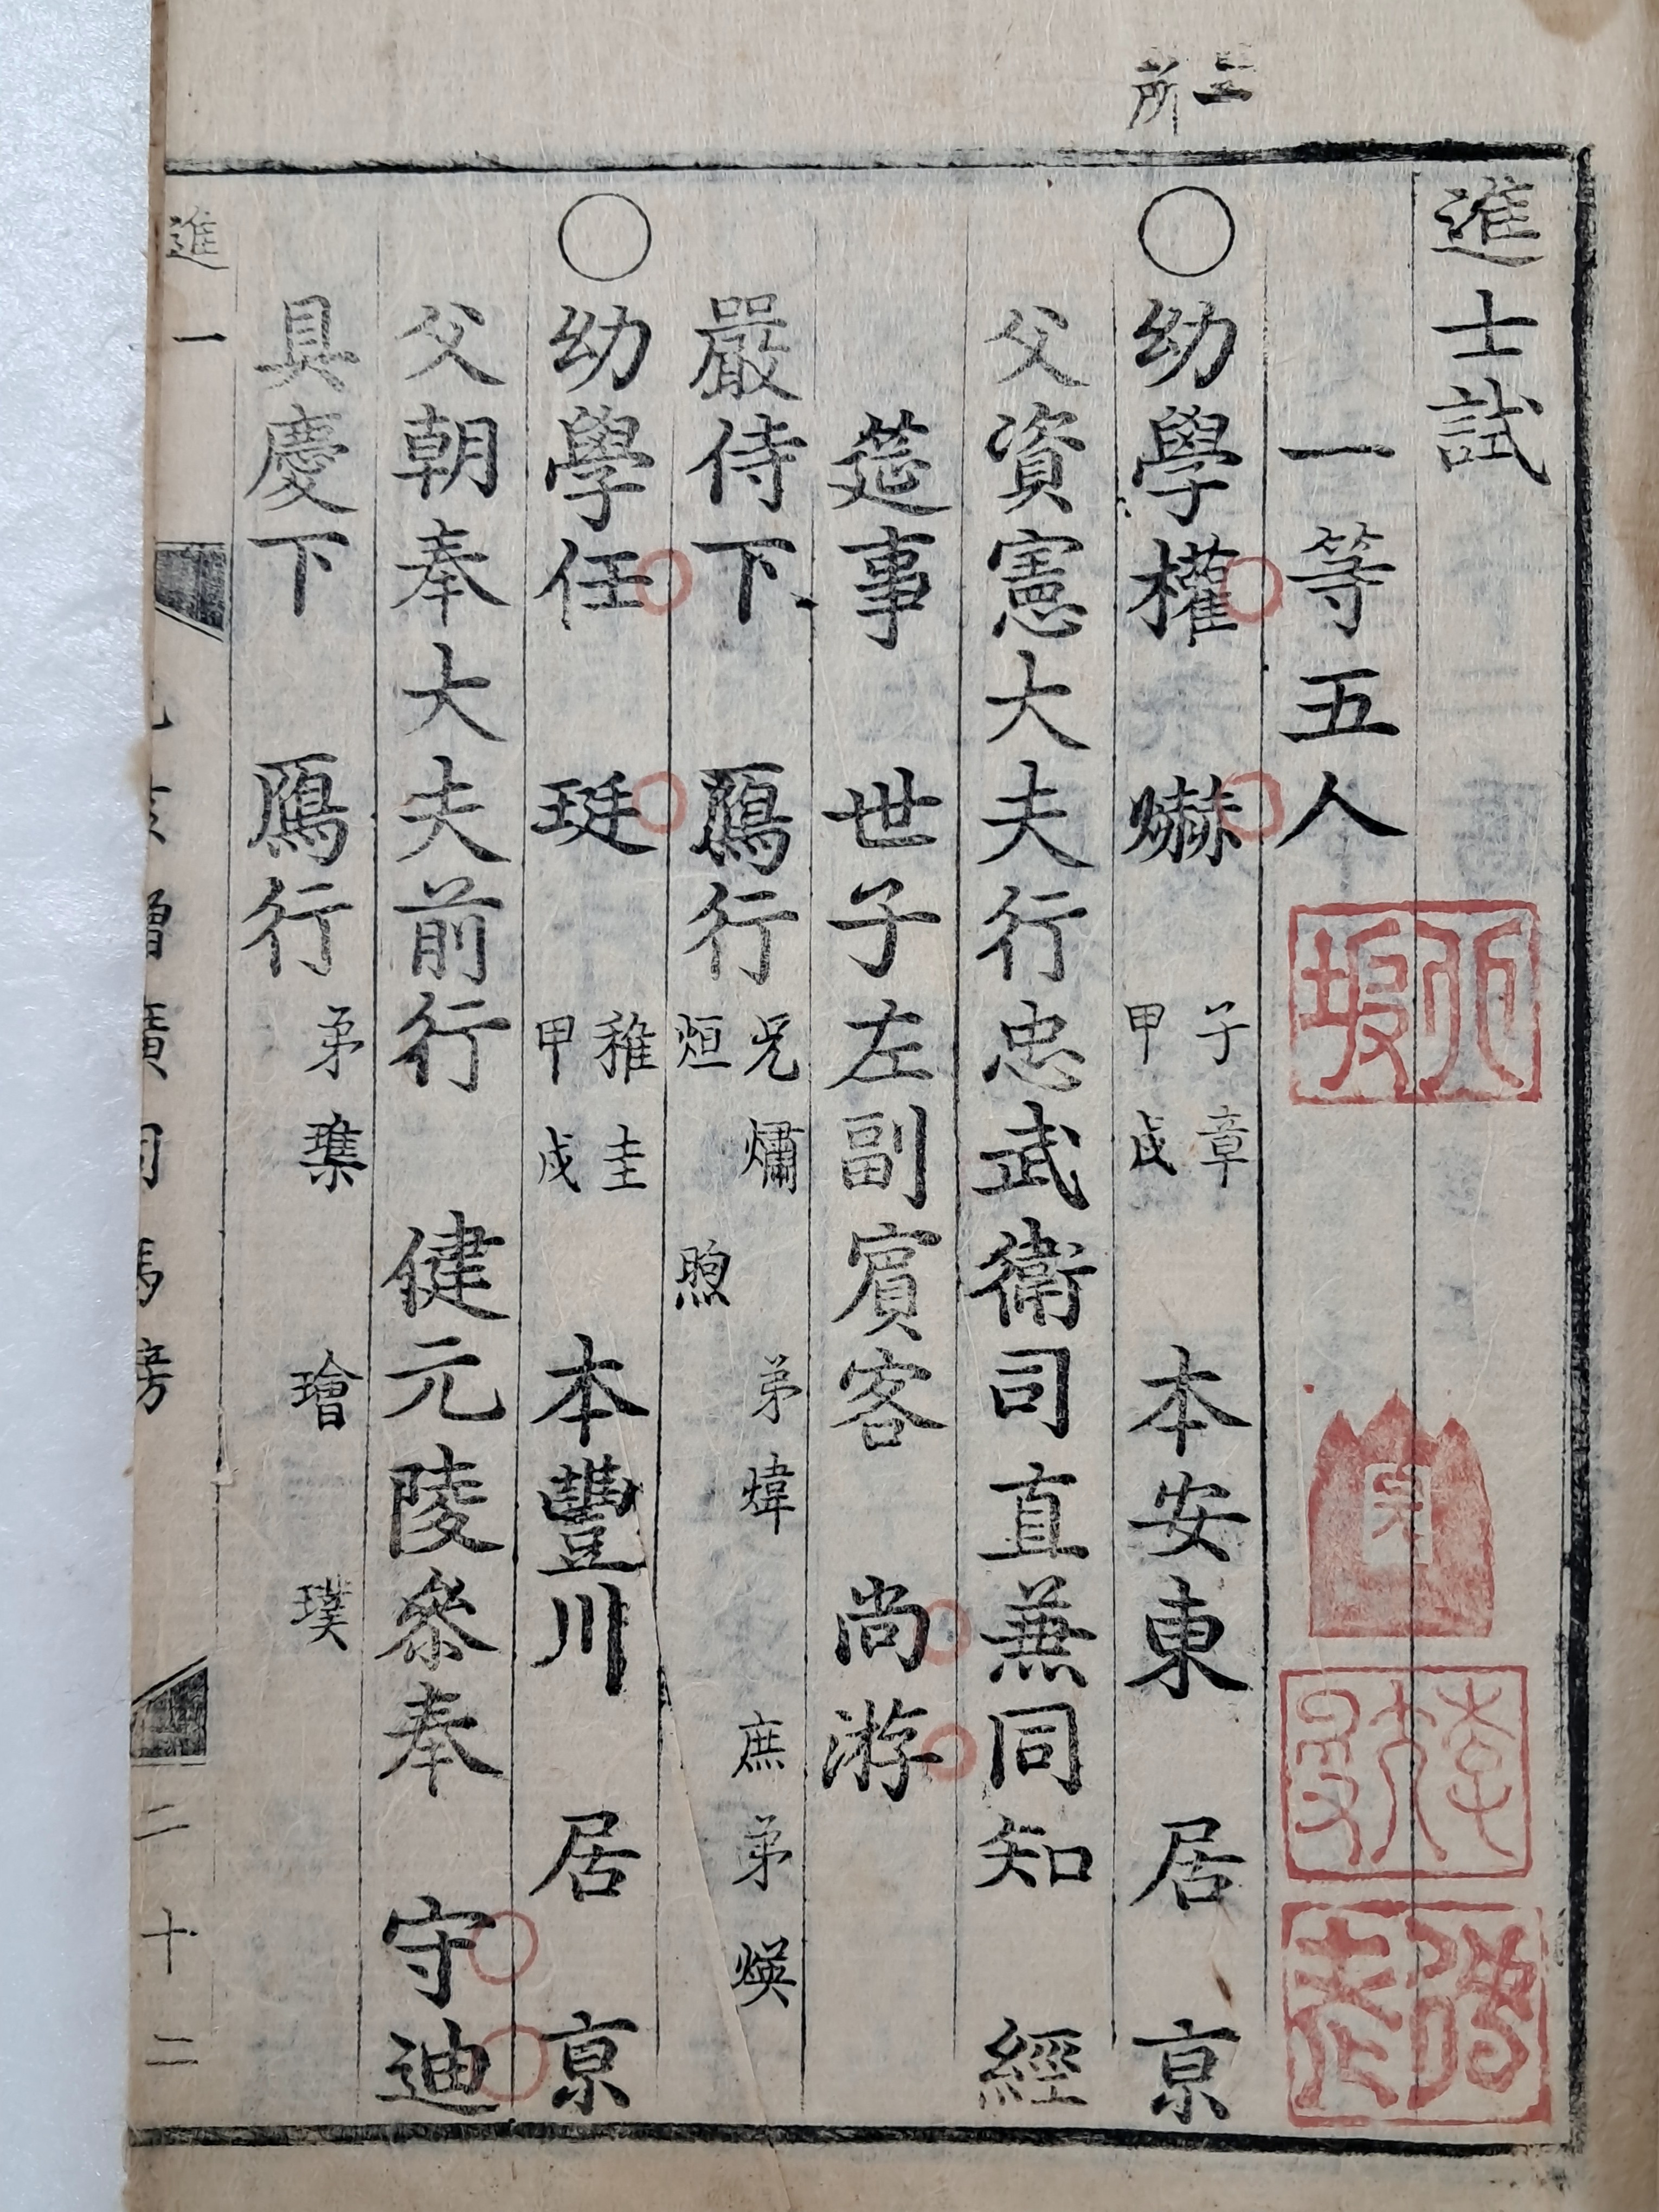 進士試
一等五人
○幼學權 爀 子章 甲戌 本安東 居 京
父資憲大夫行忠武衛司直兼同知 經
筵事 世子左副賓客 尚游
嚴侍下 鴈行 兄𤒝 烜 煦 弟煒 庶弟煐
○幼學任 珽 稚圭 甲戌 本豐川 居 京
父朝奉大夫前行 健元陵參奉 守迪
具慶下 鴈行 弟㻫 璯 璞
進一
增廣司馬榜
二十二